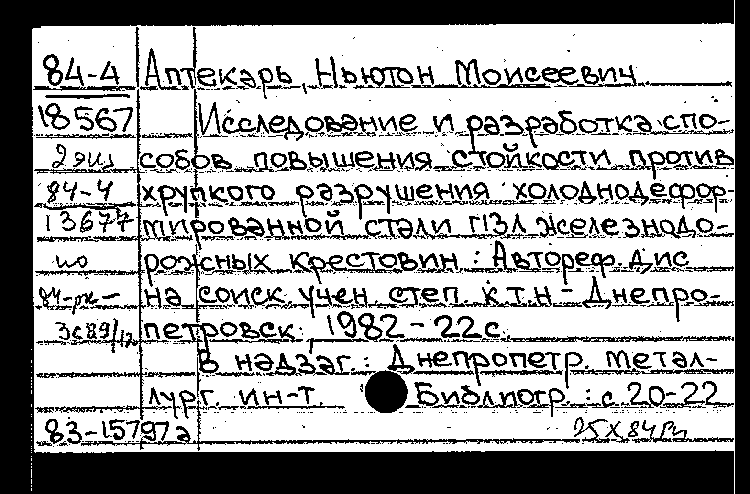 84-4 Аптекарь, Ньютон Моисеевич
18567 Исследование и разработка спо-
2 экз собов повышения стойкости против
84-4 хрупкого разрушения холоднодефор-
13677 мированной стали Г13Л железнодо-
рожных крестовин : Автореф. дис
на соиск. учен степ. к.т.н - Днепро-
петровск, 1982 - 22 с.
В надзаг.: Днепропетр. метал-
лург. ин-т. Библиогр.: с 20-22
83-15797а